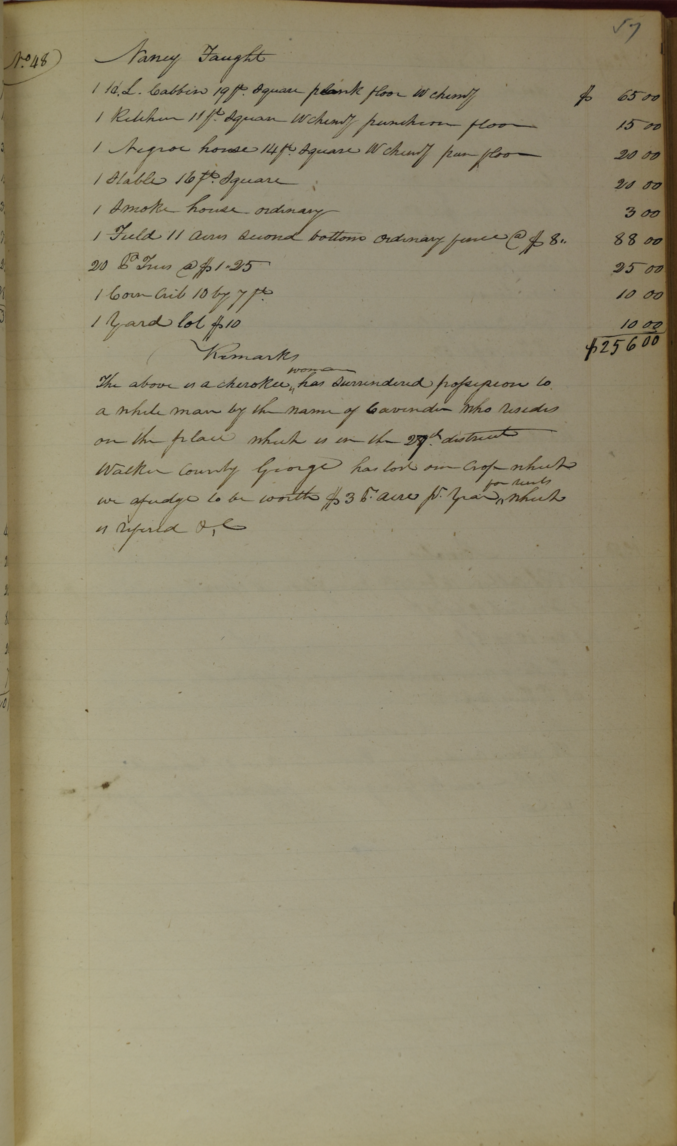 57
No 48
Nancy Faught
1 H. L. Cabbin 19 ft. Square plank floor W chimy $ 65 00
1 Kitchen 11 ft Square W chimy puncheon floor 15 00
1 Negroe house 14 ft Square W chimy pun floor 20 00
1 Stable 16 ft Square 20 00
1 Smoke house ordinary 3 00
1 Field 11 acres second bottom ordinary fence @ $ 8.. 88 00
20 Trees @ $1.25 25 00
1 Corn Crib 10 by 7 ft 10 00
1 Yard lot $10 10 00
$256 00
Remarks
The above is a cherokee woman has surrindered possession to
a white man by the name of Cavinder who resides
on the place which is in the 27th district
Walker County George has lost one crop which
we ajudge to be worth $3 pr. acre pr. year for rents which
is refered &,C